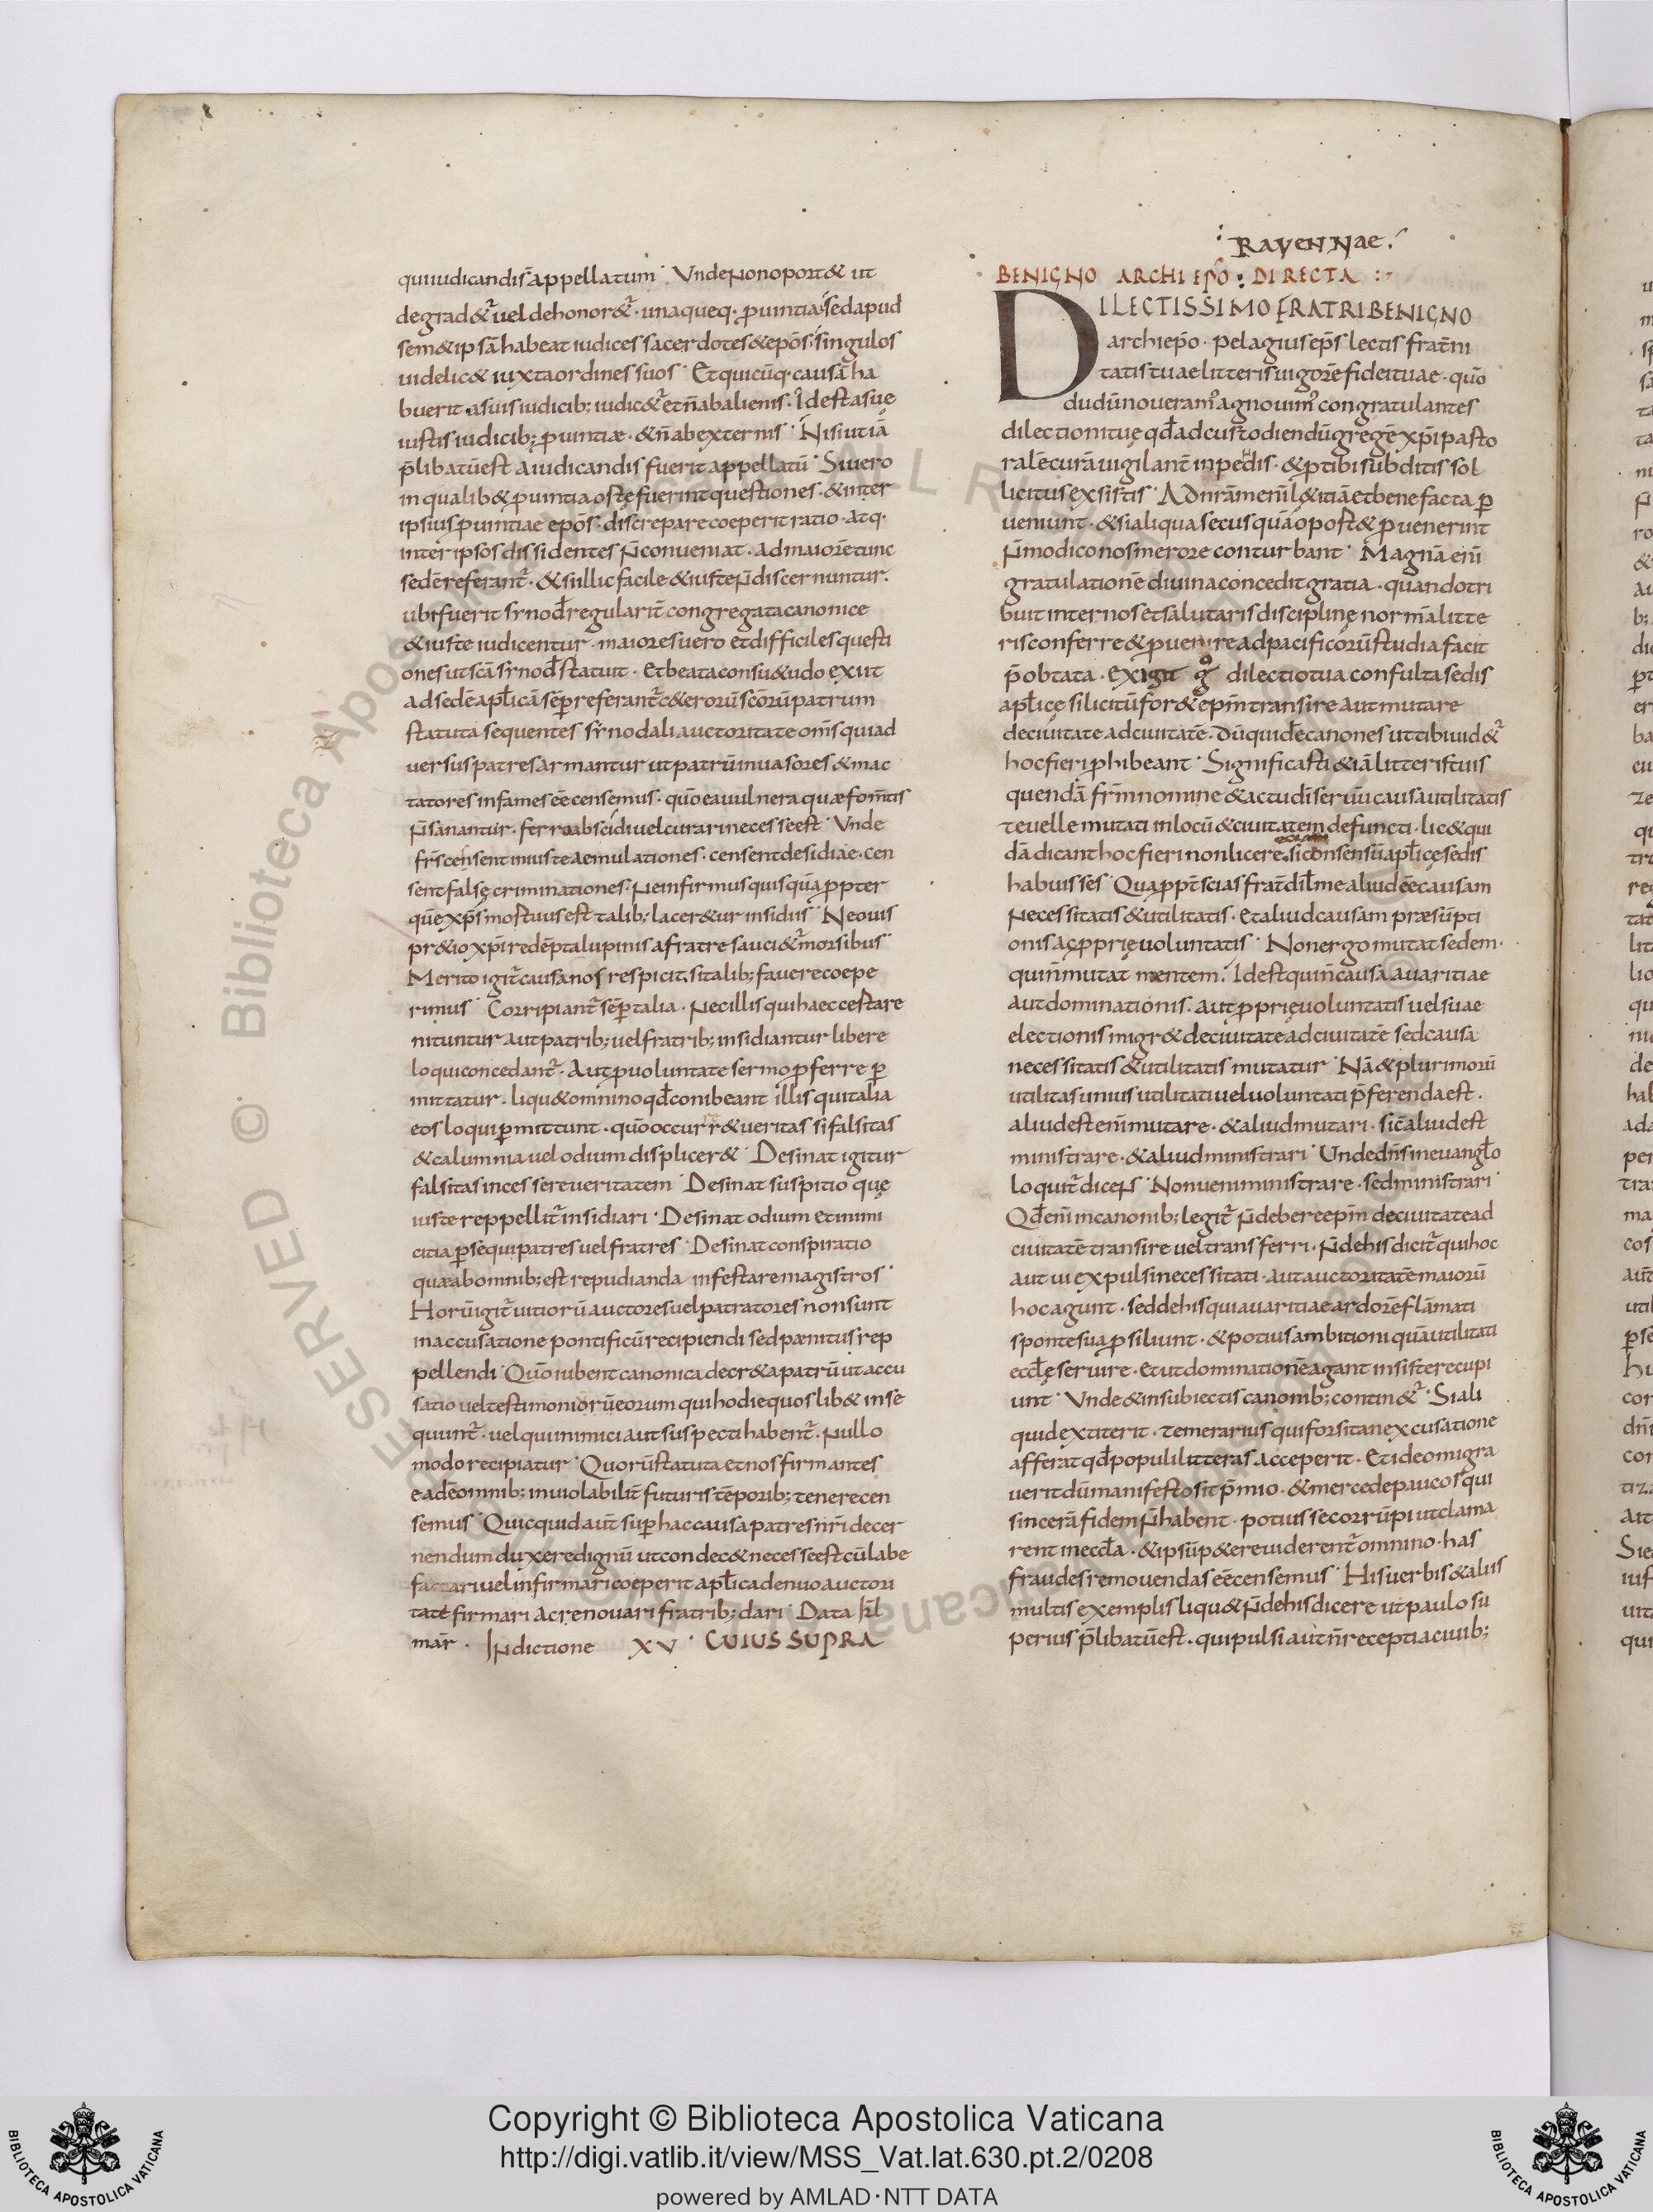 qui iudicandis̄ appellatum · Vnde non oport& ut
degrad&ur̄ uel dehonor&ur̄ · unaqueq· ꝓuintia sed apud
sem&ipsā habeat iudices sacerdotes & ep̄os · singulos
uidelic& iuxta ordines suos · Et quicūq· causā ha
buerit · a suis iudicib; iudic&ur̄ et n̄ ab alienis · Idest a suę
iustis iudicib; ꝓuintiæ · & n̄ ab externis · Nisi ut iā
p̄libatū est a iudicandis fuerit appellatū · Si uero
in qualib& ꝓuintia ostę fuerint questiones · & inter
ipsius ꝓuintiae ep̄os · discrepare coeperit ratio · atq·
inter ipsos dissidentes n̄ conueniat · ad maiorē tunc
sedē referant̄ · & si illic facile & iuste n̄ discernuntur ·
ubi fuerit synod̄ regularit̄ congregata canonice
& iuste iudicentur · maiores uero et difficiles questi
ones ut scā synod̄ statuit · et beata consu&udo exiit
ad sedē apl̄icā sēꝑ referant̄ c&erorū scōrū patrum
statuta sequentes synodali auctoritate om̄s qui ad
uersus patres armantur ut patrū inuasores & mac
tatores infames eē censemus · quō ea uulnera quæ fom̄tis
n̄ sanantur · ferro abscidi uel curari necesse est · Vnde
fr̄s censent iniuste aemulationes · censent desidiae · cen
sent falsę criminationes · Ne infirmus quisquā ꝓpter
quē xp̄s mortuus est talib; lacer&ur insidiis · Ne ouis
pr&io xp̄i redēpta lupinis a fratre sauci&ur̄ morsibus ·
Merito igit̄ causa nos respicit · si talib; fauere coepe
rimus · Corripiant̄ sēꝑ talia · Nec illis qui haec cęstare
nituntur aut patrib; uel fratrib; insidiantur libere
loqui concedant̄ · Aut ꝓ uoluntate sermo ꝓferre ꝑ
mittatur · liqu& omnino qd̄ conibeant illis qui talia
eos loqui ꝑmittunt · quō occurr& ueritas si falsitas
& calumnia uel odium displicer& · Desinat igitur
falsitas incessere ueritatem · Desinat suspitio quę
iuste reppellit̄ insidiari · Desinat odium et inimi
citia ꝑsequi patres uel fratres · Desinat conspiratio
quæ ab omnib; est repudianda infestare magistros ·
Horū igit̄ uitiorū auctores uel patratores non sunt
in accusatione pontificū recipiendi sed pænitus rep
pellendi · Quō iubent canonica decr&a patrū ut accu
satio uel testimoniorū eorum qui hodie quoslib& inse
quunt̄ · uel qui inimici aut suspecti habent̄ · Nullo
modo recipiatur · Quorū statuta et nos firmantes
eadē omnib; inuiolabilit̄ futuris tēporib; tenere cen
semus · Quicquid aut̄ suꝑ hac causa patres nr̄i decer
nendum duxere dignū ut condec& necesse est cū labe
factari uel infirmari coeperit apl̄ica denuo auctori
tate firmari ac renouari fratrib; dari · Data kl̄
mār · Indictione XV · CUIUS SUPRA
: RAVENNAE :
BENIGNO ARCHIEP̄O : DIRECTA :-
DILECTISSIMO FRATRI BENIGNO
archiep̄o · Pelagius ep̄s lectis fratn̄i
tatis tuae litteris uigorē fidei tuae · quō
dudū noueram̄ agnouim̄ congratulantes
dilectioni tuę qd̄ ad custodiendū gregē xp̄i pasto
ralē curā uigilant̄ inpendis · & ꝓ tibi subditis sol
licitus exsistis · Ad nr̄am enī l&itiā et bene facta ꝑ
ueniunt · & si aliqua secus quā oport& ꝓuenerint
n̄ modico nos merore conturbant · Magnā enī
gratulationē diuina concedit gratia · quando tri
buit inter nos et salutaris disciplinę normā litte
ris conferre & ꝓuenire ad pacificorū studia facit
p̄obtata · Exigit dilectio tua consulta sedis
apl̄icę si licitū for& ep̄m transire aut mutare
de ciuitate ad ciuitatē · Dū quidē canones ut tibi uid&ur̄
hoc fieri ꝓhibeant · Significasti &iā litteris tuis
quendā fr̄m nomine & actu diseruū causa utilitatis
te uelle mutati in locū & ciuitatem defuncti · lic& qui
dā dicant hoc fieri non licere · si consensū apl̄icę sedis
habuisses · Quapropt̄ scias frat̄ dil̄me aliud eē causam
necessitatis & utilitatis · et aliud causam præsūpti
onis ac ꝓprię uoluntatis · Non ergo mutat sedem ·
qui n̄ mutat mentem · Idest qui n̄ causa auaritiae
aut dominationis · aut ꝓprię uoluntatis uel suae
electionis migr& de ciuitate ad ciuitatē sed causa
necessitatis & utilitatis mutatur · Nā & plurimorū
utilitas unius utilitati uel uoluntati p̄ferenda est ·
aliud est enī mutare · & aliud mutari · sic̄ aliud est
ministrare · & aliud ministrari · Unde dn̄s in euangl̄o
loquit̄ dicens · Non ueni ministrare · sed ministrari ·
Qd̄ enī in canonib; legit̄ n̄ debere ep̄m de ciuitate ad
ciuitatē transire uel transferri · n̄ de his dicit̄ qui hoc
aut ui expulsi necessitati · aut auctoritatē maiorū
hoc agunt · sed de his qui auaritiae ardorē flāmati
sponte sua ꝓsiliunt · & potius ambitioni quā utilitati
eccl̄ę seruire · et ut dominationē agant insistere cupi
unt · Vnde & in subiectis canonib; contin&ur̄ · Si ali
quid extiterit · temerarius qui forsitan excusatione
afferat qd̄ populi litteras acceperit · Et ideo migra
uerit dū manifesto sit p̄mio · & mercede paucos qui
sincerā fidem n̄ habent · potius se corrūpi ut clama
rent in eccl̄a · & ipsū p&ere uiderent̄ omnino · has
fraudes remouendas eē censemus · His uerbis & aliis
multis exemplis liqu& n̄ de his dicere ut paulo su
perius p̄libatū est · qui pulsi aut n̄ recepti a ciuib;
Copyright © Biblioteca Apostolica Vaticana
http://digi.vatlib.it/view/MSS_Vat.lat.630.pt.2/0208
powered by AMLAD·NTT DATA